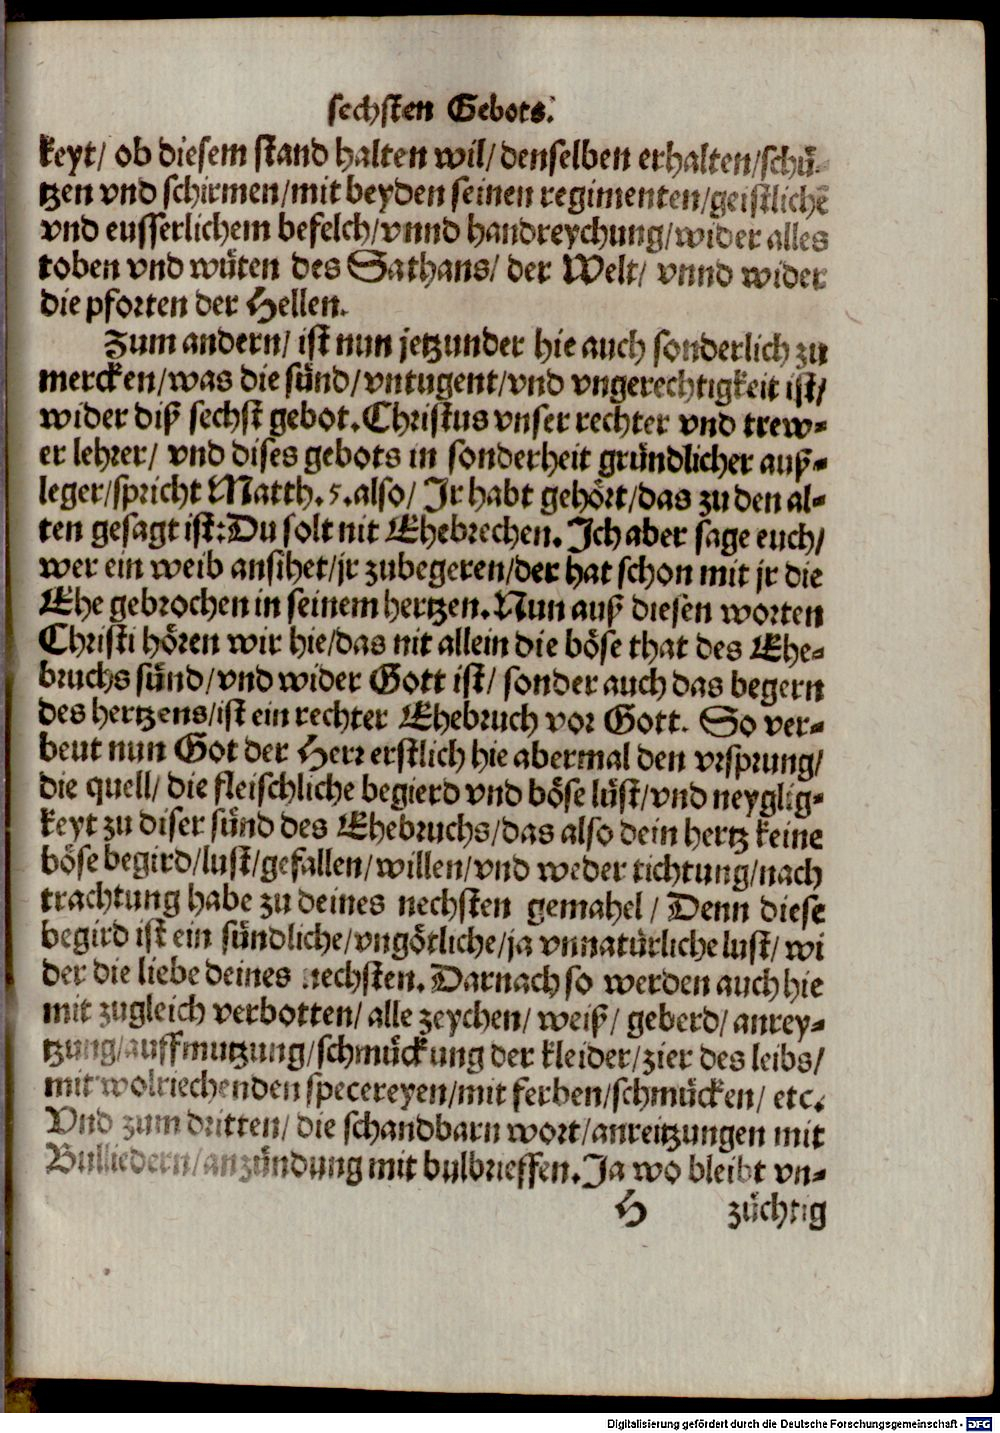 sechsten Gebots.
keyt/ ob diesem stand halten wil/ denselben erhalten/schü-
tzen vnd schirmen/mit beyden seinen regimenten/geistlichē
vnd eusserlichem befelch/vnnd handreychung/wider alles
toben vnd wüten des Sathans/ der Welt/ vnnd wider
die pforten der Hellen.
Zum andern/ ist nun jetzunder hie auch sonderlich zu
mercken/was die sünd/vntugent/vnd vngerechtigkeit ist/
wider diß sechst gebot.Christus vnser rechter vnd trew-
er lehrer/ vnd dises gebots in sonderheit gründlicher auß-
leger/spricht Matth.5.also/ Jr habt gehört/das zu den al-
ten gesagt ist:Du solt nit Ehebrechen. Ich aber sage euch/
wer ein weib ansihet/jr zubegeren/der hat schon mit jr die
Ehe gebrochen in seinem hertzen.Nun auß diesen worten
Christi hören wir hie/das nit allein die böse that des Ehe-
bruchs sünd/vnd wider Gott ist/ sonder auch das begern
des hertzens/ist ein rechter Ehebruch vor Gott. So ver-
beut nun Got der Herr erstlich hie abermal den vrsprung/
die quell/ die fleischliche begierd vnd böse lüst/vnd neyglig-
keyt zu diser sünd des Ehebruchs/das also dein hertz keine
böse begird/lust/gefallen/willen/vnd weder tichtung/nach
trachtung habe zu deines nechsten gemahel / Denn diese
begird ist ein sündliche/vngötliche/ja vnnatürliche lust/ wi
der die liebe deines nechsten. Darnach so werden auch hie
mit zugleich verbotten/ alle zeychen/ weiß/ geberd/ anrey-
tzung/auffmutzung/schmückung der kleider/zier des leibs/
mit wolriechenden specereyen/mit ferben/schmücken/ etc.
Vnd zum dritten/ die schandbarn wort/anreitzungen mit
Bulliedern/anzündung mit bulbrieffen.Ja wo bleibt vn-
H züchtig
Digitalisierung gefördert durch die Deutsche Forschungsgemeinschaft - DFG